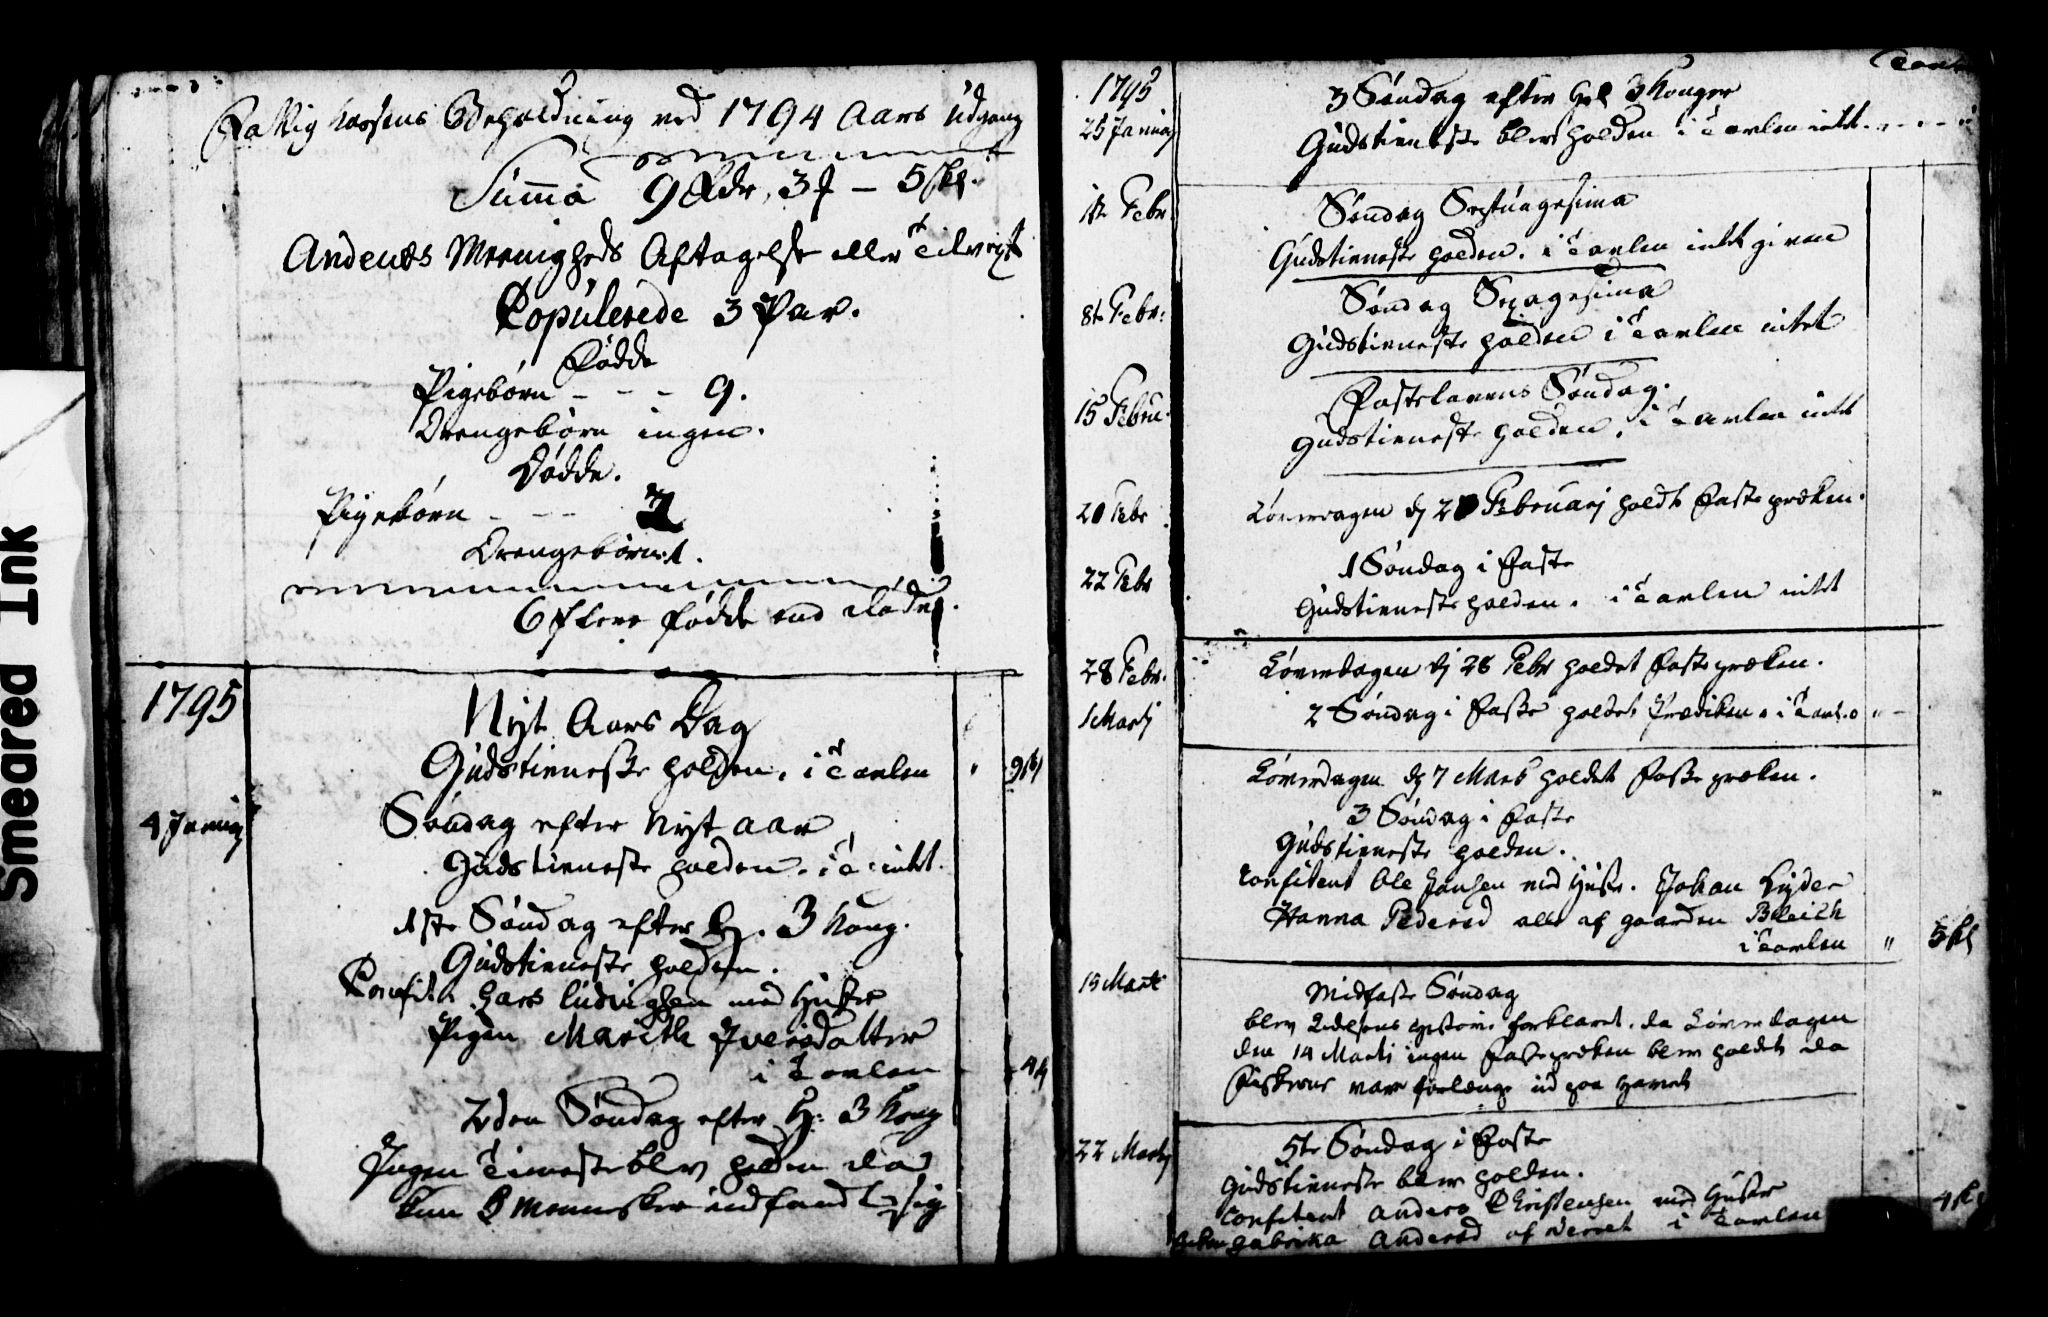 Fattig Kassens Beholdning ved 1794 Aars Udgang
Summa 9 Rdr. 3 - 5 skl.
Andenæs Meenigheds Aftagelse eller Tilvext
Copulerede 3 Par.
Fødde
Pigebørn - - - 9.
Drengebørn ingen.
Dødde.
Pigebørn - - - 2
Drengebørn 1.
6 flere fødde end døde.
1795
Nyt Aars Dag
Gudstieneste holden. i Tavlen " 9 sk
4 Januarj
Søndag efter Nyt aar
Gudstieneste holden. i T. intet.
1ste Søndag efter H. 3 Kong.
Gudstieneste holden.
Confit. Lars Ludvigsen med Hustr
Pigen Marith Iversdatter
i Tavlen 4 sk
2den Søndag efter H: 3 Kong
Ingen Tieneste blev holden da
kun 8 Mennesker indfandt sig
1795
25 Januarj
3 Søndag efter Hel 3 Konger
Gudstieneste blev holden i Tavlen intet. - - - -
1st Febr.
Søndag Septuagesima
Gudstieneste holden. i Tavlen intet given
8t Febr:
Søndag Sexagesima
Gudstieneste holden i Tavlen intet
15 Febru.
Fastelavens Søndag.
Gudstieneste holden. i Tavlen intet
20 Febr
Løverdagen dj 20 Februarj holdt Fastepræken.
22 Febr
1 Søndag i Faste
Gudstieneste holden. i Tavlen intet
28 Febr.
Løverdagen dj 28 Febr holdet Fastepræken.
1 Martj
2 Søndag i Faste holdet Prædiken. i Tavl. 0 " -
Løverdagen dj 7 Marts holdet Fastepræken.
3 Søndag i Faste
Gudstieneste holden.
Confitent Ole Hansen med Hustr. Johan Lyder
Hanna Pedersd alle af gaarden Bleich
i Tavlen " 5 sk
15 Marti
Midfaste Søndag
blev Lidelsens Historie forklaret. da Løverdagen
den 14 Marti ingen Fastepræken blev holdet da
Fiskerne var forlængst ud paa Havet
22 Martj
5te Søndag i Faste
Gudstieneste blev holden.
Confitent Anders Christensen med Hustr
Gabrika Andersd af i Tavlen 4 sk
Smeared Ink